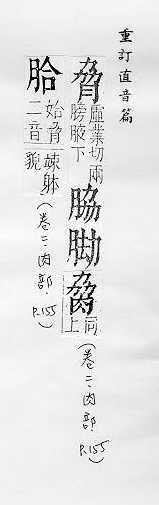 重訂直音篇
脅 虛業切兩
膀腋下
脇
同上
(卷二·肉部 P.155)
始脅
二音
疎躰
貌
(卷二·肉部 P.155)